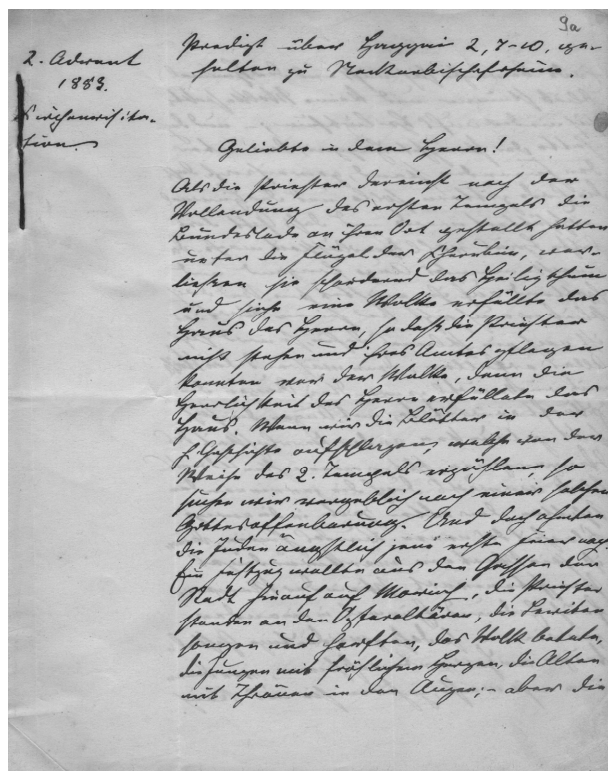 9a
2. Advent
1883.
Kirchenvisita-
tion.
Predigt über Haggai 2, 7-10, ge-
halten zu Neckarbischofsheim.
Geliebte in dem Herrn!
Als die Priester dereinst nach der
Vollendung des ersten Tempels die
Bundeslade an ihren Ort gestellt hatten
unter die Flügel der Cherubim, ver-
ließen sie schaudernd das Heiligthum
und siehe eine Wolke erfüllte das
Haus des Herrn, so daß die Priester
nicht stehen und ihres Amtes pflegen
konnten vor der Wolke, denn die
Herrlichkeit des Herrn erfüllete das
Haus. Wenn wir die Blätter in der
h. Geschichte aufschlagen, welche von der
Weihe des 2. Tempels erzählen, so
suchen wir vergeblich nach einer solchen
Gottesoffenbarung. Und doch ahmten
die Juden ängstlich jene erste Feier nach.
Ein Festzug wallte aus den Gassen der
Stadt hinauf auf Moriah, die Priester
standen an den Opferaltären, die Leviten
sangen und harften, das Volk betete,
die Jungen mit fröhlichem Herzen, die Alten
mit Thränen in den Augen; - aber die